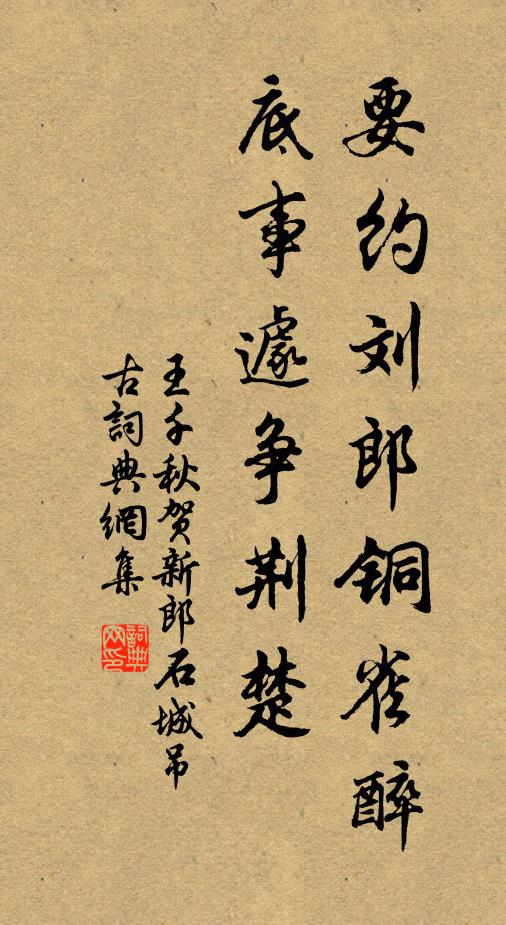 要约刘郎铜雀醉
底事遽争荆楚
王千秋贺新郎石城吊
古词典網集
詞典
网印